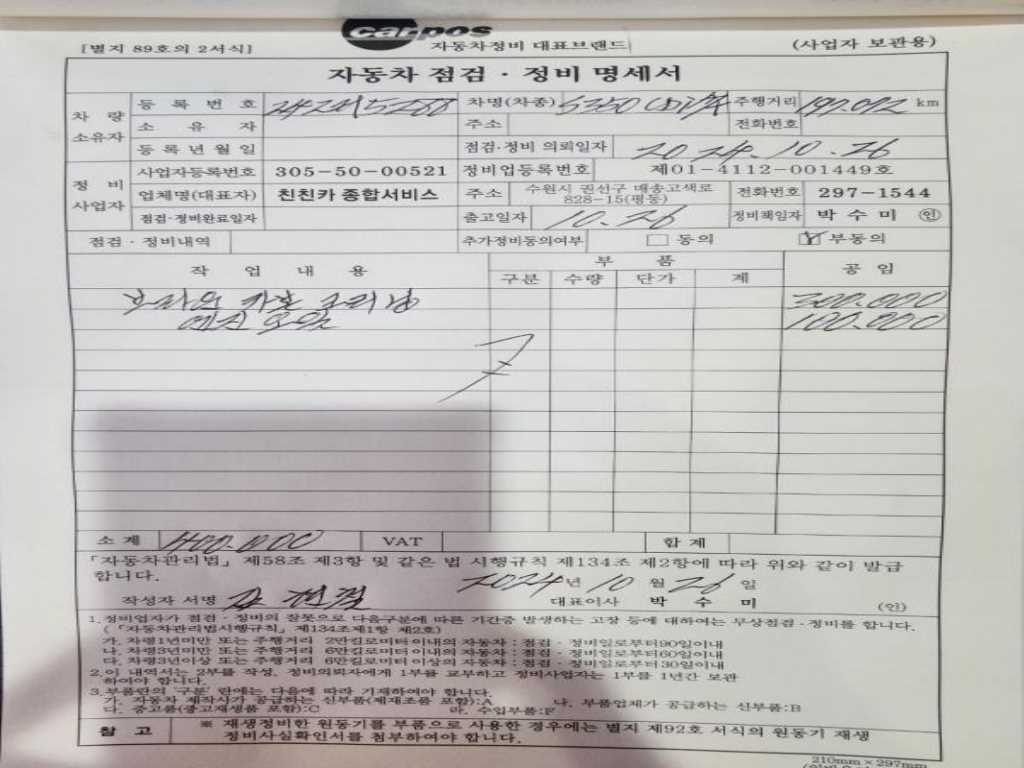 carpos
[별지 89호의 2서식] 자동차정비 대표브랜드 (사업자 보관용)
자동차 점검 · 정비 명세서
차 량 소유자
등 록 번 호 차명(차종) 주행거리 197.092 km
소 유 자 주소 전화번호
등 록 년 월 일 점검·정비 의뢰일자 2024.10.26
정 비 사업자
사업자등록번호 305-50-00521 정비업등록번호 제01-4112-001449호
업체명(대표자) 친친카 종합서비스 주소 수원시 권선구 매송고색로 828-15(평동) 전화번호 297-1544
점검·정비완료일자 출고일자 10.26 정비책임자 박 수 미 ㊞
점검 · 정비내역 추가정비동의여부 동의 부동의
작 업 내 용 부 품 공 임
구분 수량 단가 계
크리닝 300.000
오일 100.000
소 계 400.000 VAT 합 계
「자동차관리법」 제58조 제3항 및 같은 법 시행규칙 제134조 제2항에 따라 위와 같이 발급
합니다. 2024년 10 월 26 일
작성자 서명 대표이사 박 수 미 (인)
1. 정비업자가 점검 · 정비의 잘못으로 다음구분에 따른 기간중 발생하는 고장 등에 대하여는 무상점검 · 정비를 합니다.
(「자동차관리법시행규칙」 제134조제1항 제2호)
가. 차령1년미만 또는 주행거리 2만킬로미터이내의 자동차 : 점검 · 정비일로부터90일이내
나. 차령3년미만 또는 주행거리 6만킬로미터이내의 자동차 : 점검 · 정비일로부터60일이내
다. 차령3년이상 또는 주행거리 6만킬로미터이상의 자동차 : 점검 · 정비일로부터30일이내
2. 이 내역서는 2부를 작성, 정비의뢰자에게 1부를 교부하고 정비사업자는 1부를 1년간 보관
하여야 합니다.
3. 부품란의 '구분' 란에는 다음에 따라 기재하여야 합니다.
가. 자동차 제작사가 공급하는 신부품(제재조품 포함):A 나. 부품업체가 공급하는 신부품:B
다. 중고품(중고재생품 포함):C 라. 수입부품:F
참 고 ※ 재생정비한 원동기를 부품으로 사용한 경우에는 별지 제92호 서식의 원동기 재생
정비사실확인서를 첨부하여야 합니다.
210mm×297mm